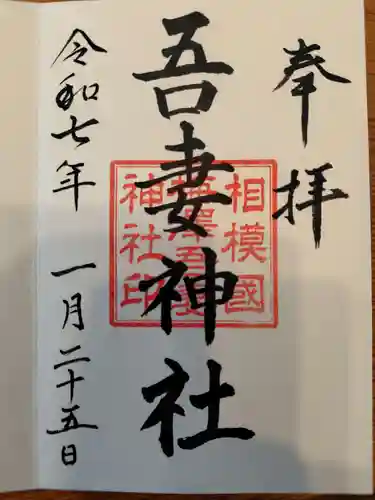 奉拝
吾妻神社
相模國
神社印
令和七年 一月二十五日